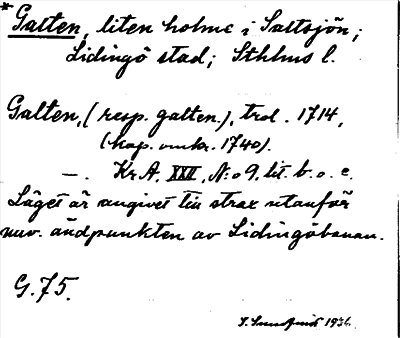 * Galten, liten holme i Saltsjön;
Lidingö stad; Sthlms l.
Galten, (resp. galten.), trol. 1714,
(kop. omkr. 1740).
—. Kr. A. XXII, No 9, lit. b. o. c.
Läget är angivet till strax utanför
nuv. ändpunkten av Lidingöbanan.
G. 75.
1936.